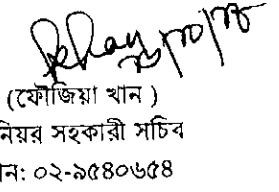 (ফৌজিয়া খান )
নিয়র সহকারী সচিব
ন: ০২-৯৫৪০৬৫৪